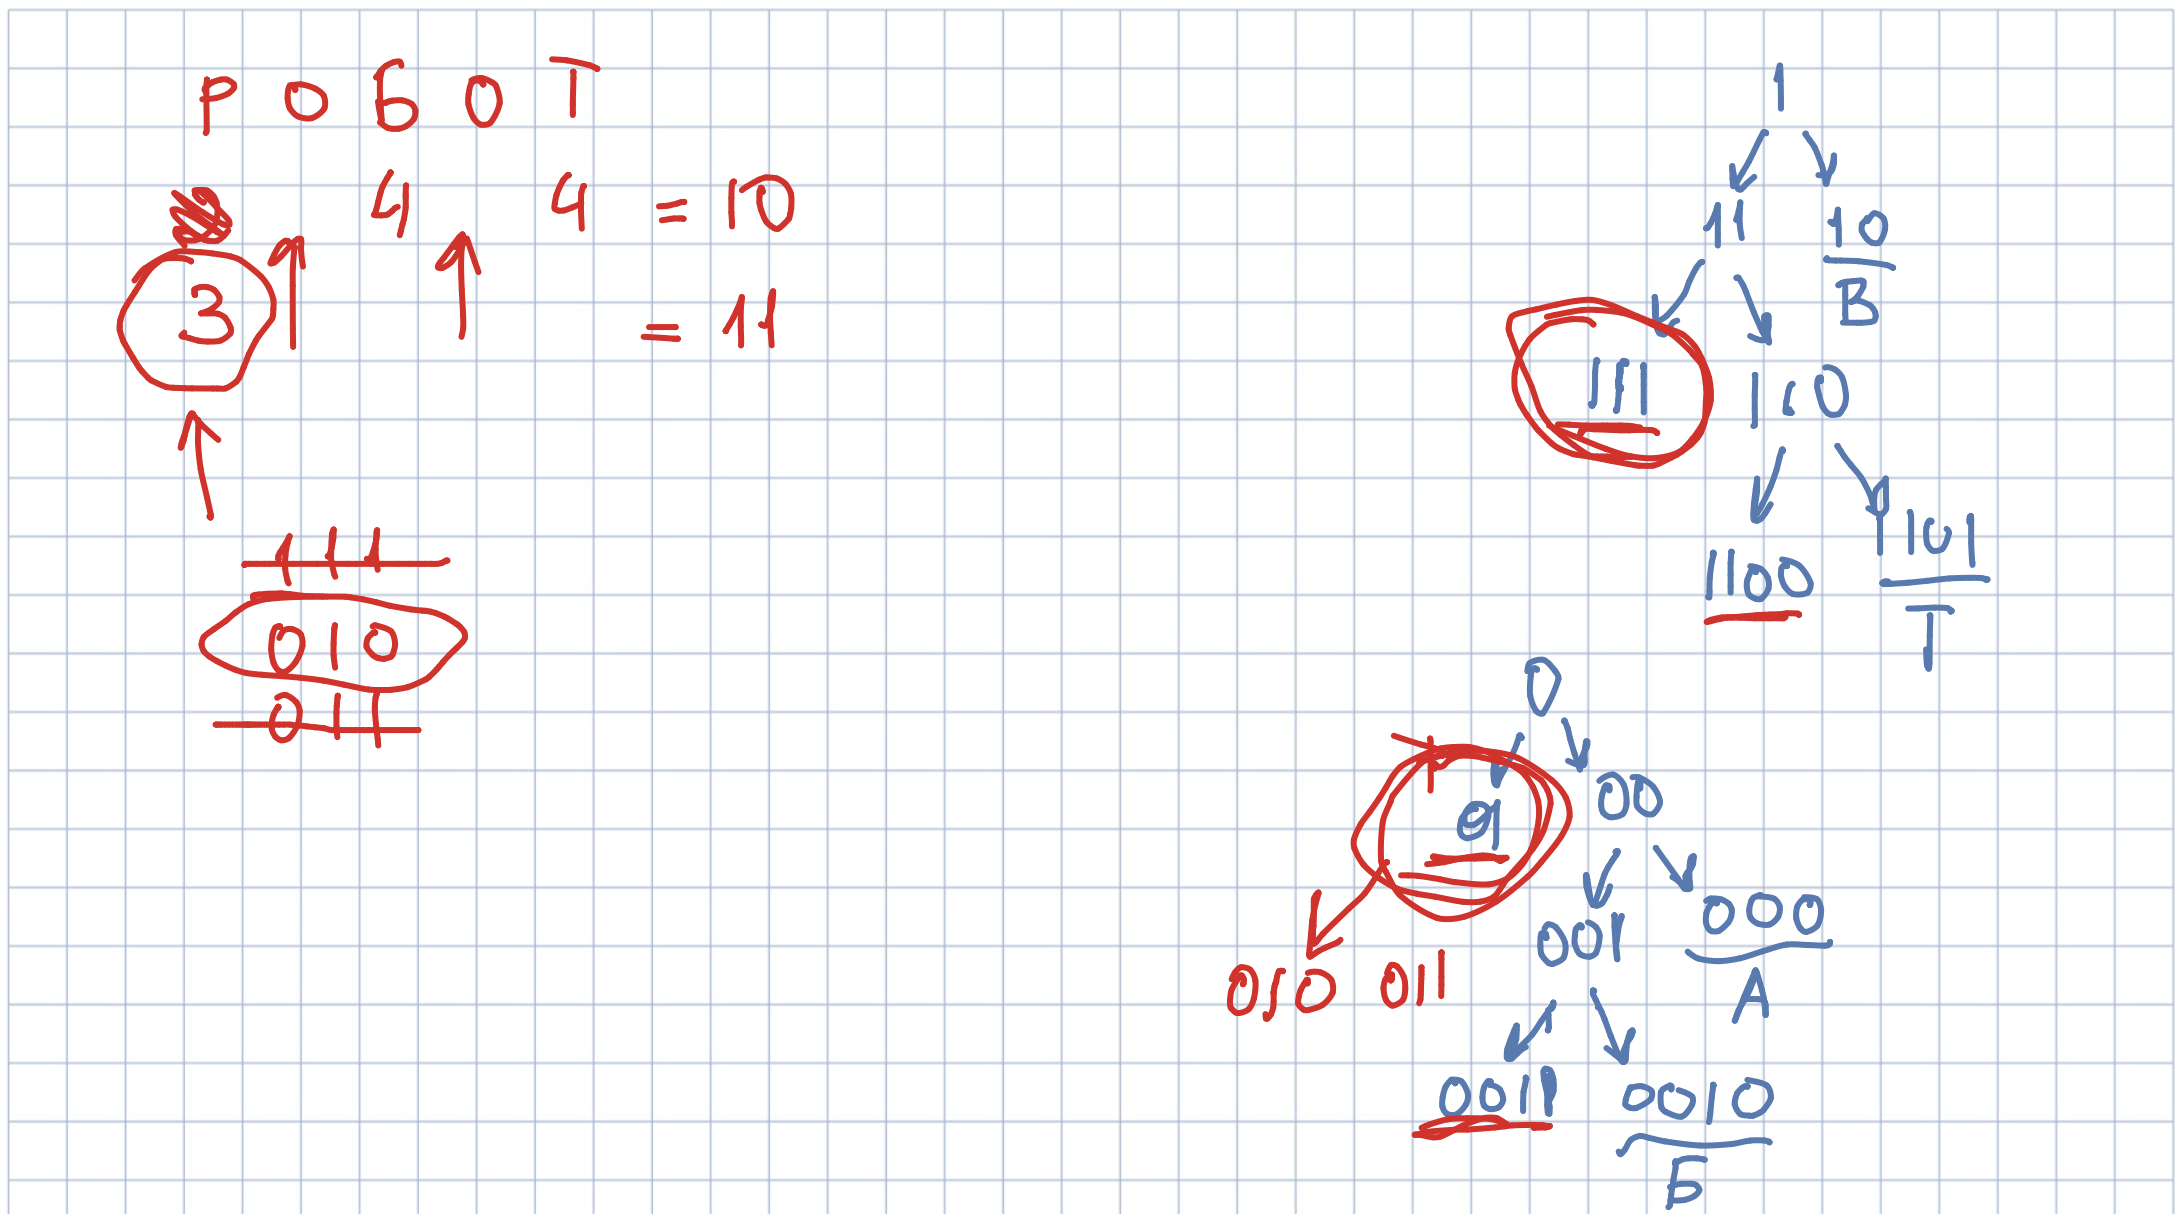 РОБОТ
4 4 = 10
3 = 11
111
010
011
1
11 10
В
111 110
1100 1101
Т
0
01 00
001 000
А
010 011
0011 0010
Б